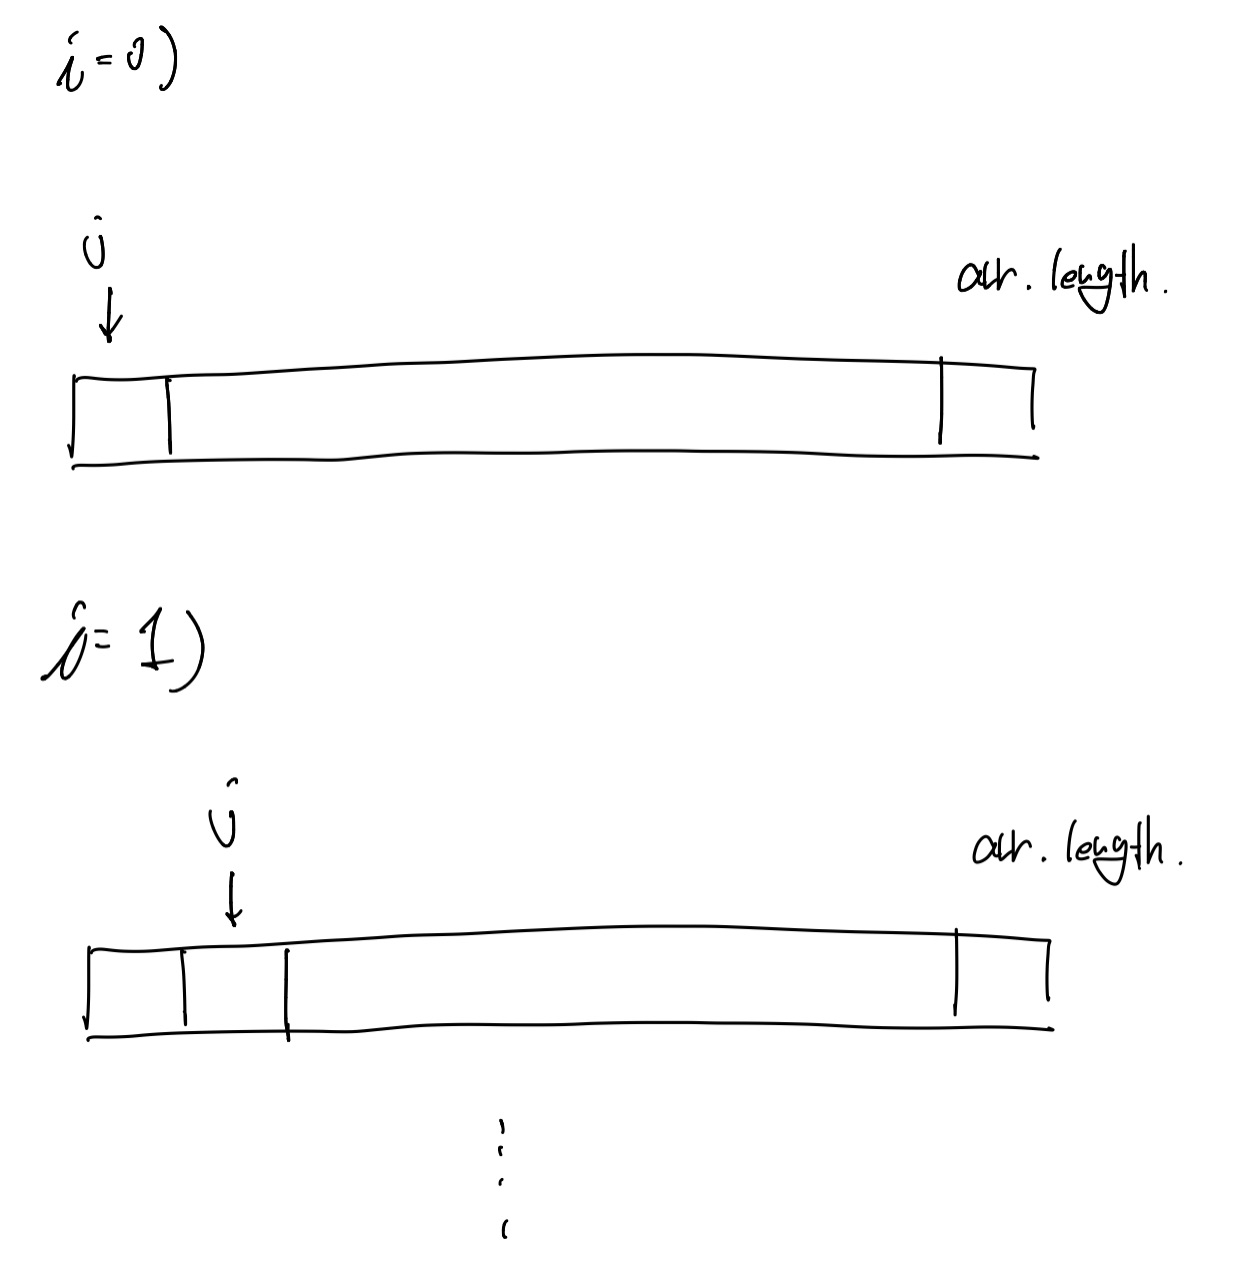 i=0)
j
arr.length.
i=1)
j
arr.length.